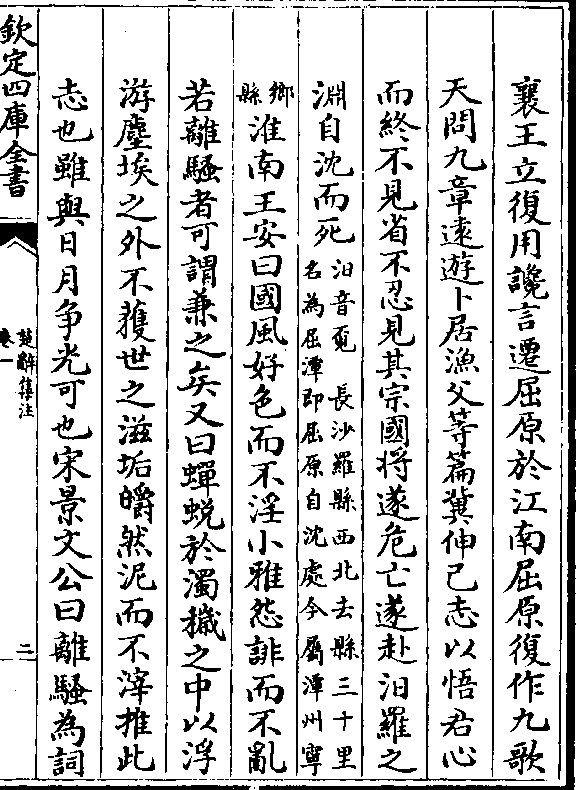 襄王立復用讒言遷屈原於江南屈原復作九歌
天問九章遠遊卜居漁父等篇冀伸己志以悟君心
而終不見省不忍見其宗國將遂危亡遂赴汨羅之
淵自沈而死汨音覔長沙羅縣西北去縣三十里名為屈潭即屈原自沈處今屬潭州寧
鄉縣淮南王安曰國風好色而不淫小雅怨誹而不亂
若離騷者可謂兼之矣又曰蟬蛻於濁穢之中以浮
游塵埃之外不獲世之滋垢皭然泥而不滓推此
志也雖與日月争光可也宋景文公曰離騷為詞
欽定四庫全書
楚辭集注
卷一
二